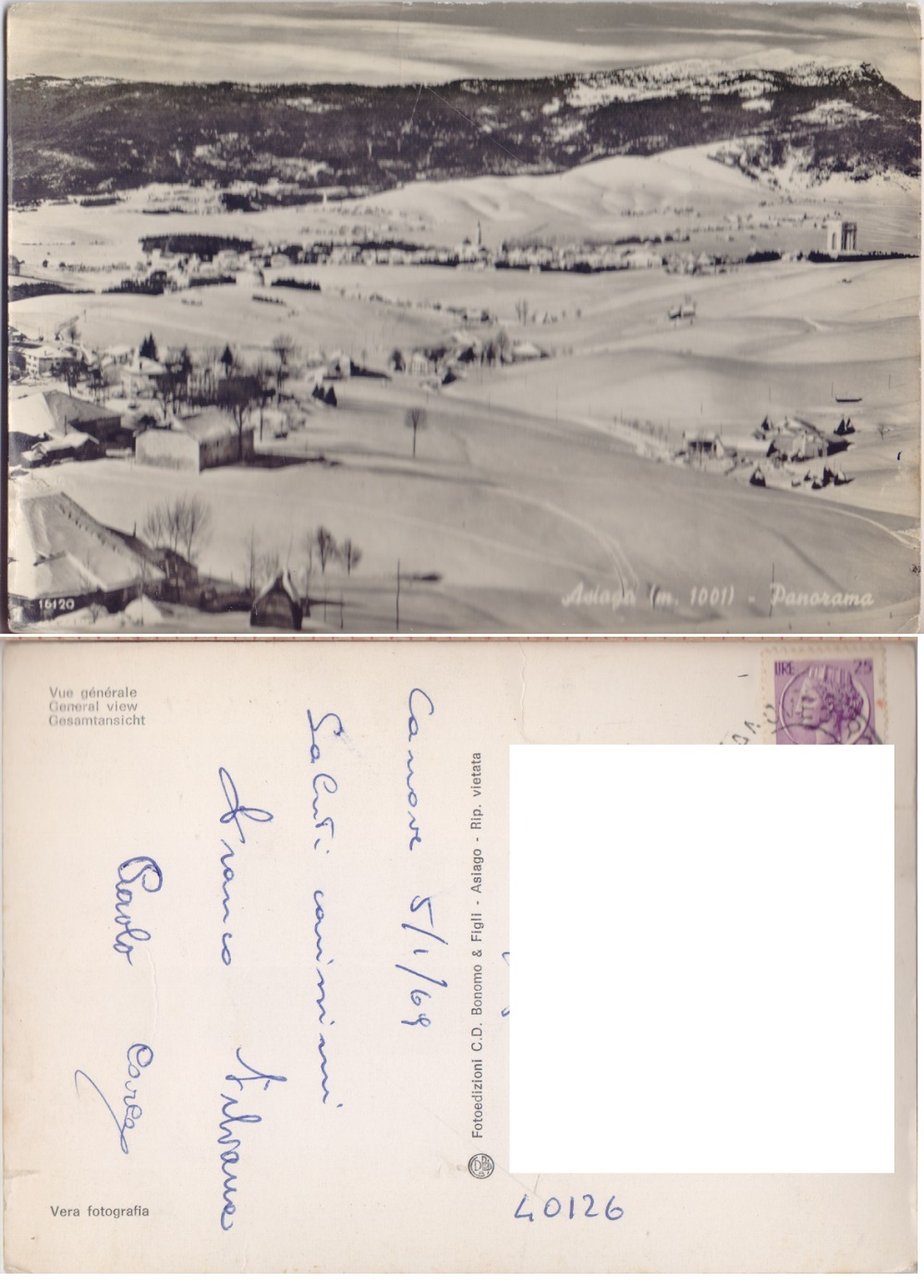 16120
Asiago (m. 1001) - Panorama
Vue générale
General view
Gesamtansicht
LIRE 25
Canove 5/1/69
Saluti carissimi
Franco Silvana
Paolo
Fotoedizioni C.D. Bonomo & Figli - Asiago - Rip. vietata
40126
Vera fotografia